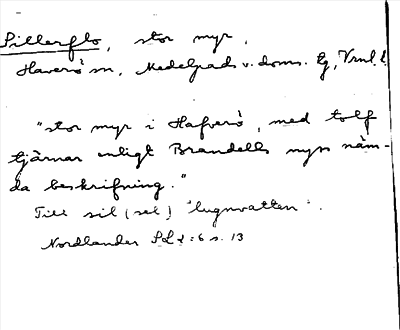 Sillerflo, stor myr,
Haverö sn, Medelpads v. doms. lg, Vrnl. l.
"stor myr i Hafverö, med tolf
tjärnar enligt Brandells nyss näm-
da beskrifning."
Till sil (sel) 'lugnvatten'.
Nordlander SL 2:6 s. 13